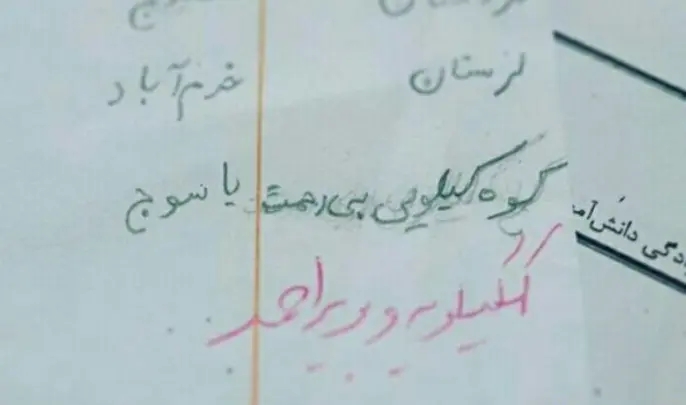 لرستان خرم‌آباد
کوه کیلویی بی رحمت یاسوج
کهگیلویه و بویراحمد
دانش‌آمو